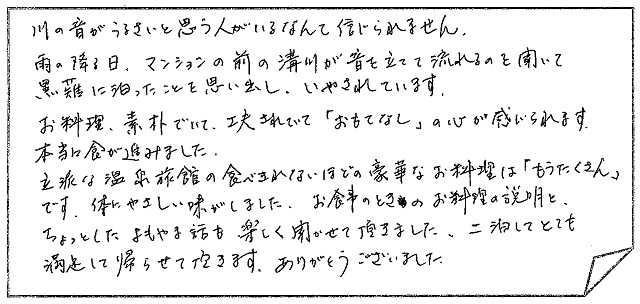 川の音がうるさいと思う人がいるなんて信じられません。
雨の降る日、マンションの前の溝川が音を立てて流れるのを聞いて
黒薙に泊ったことを思い出し、いやされています。
お料理、素朴でいて、工夫されていて「おもてなし」の心が感じられます。
本当に食が進みました。
立派な温泉旅館の食べきれないほどの豪華なお料理は「もうたくさん」
です。体にやさしい味がしました。お食事のときのお料理の説明と、
ちょっとしたよもやま話も楽しく聞かせて頂きました。二泊してとても
満足して帰らせて頂きます。ありがとうございました。